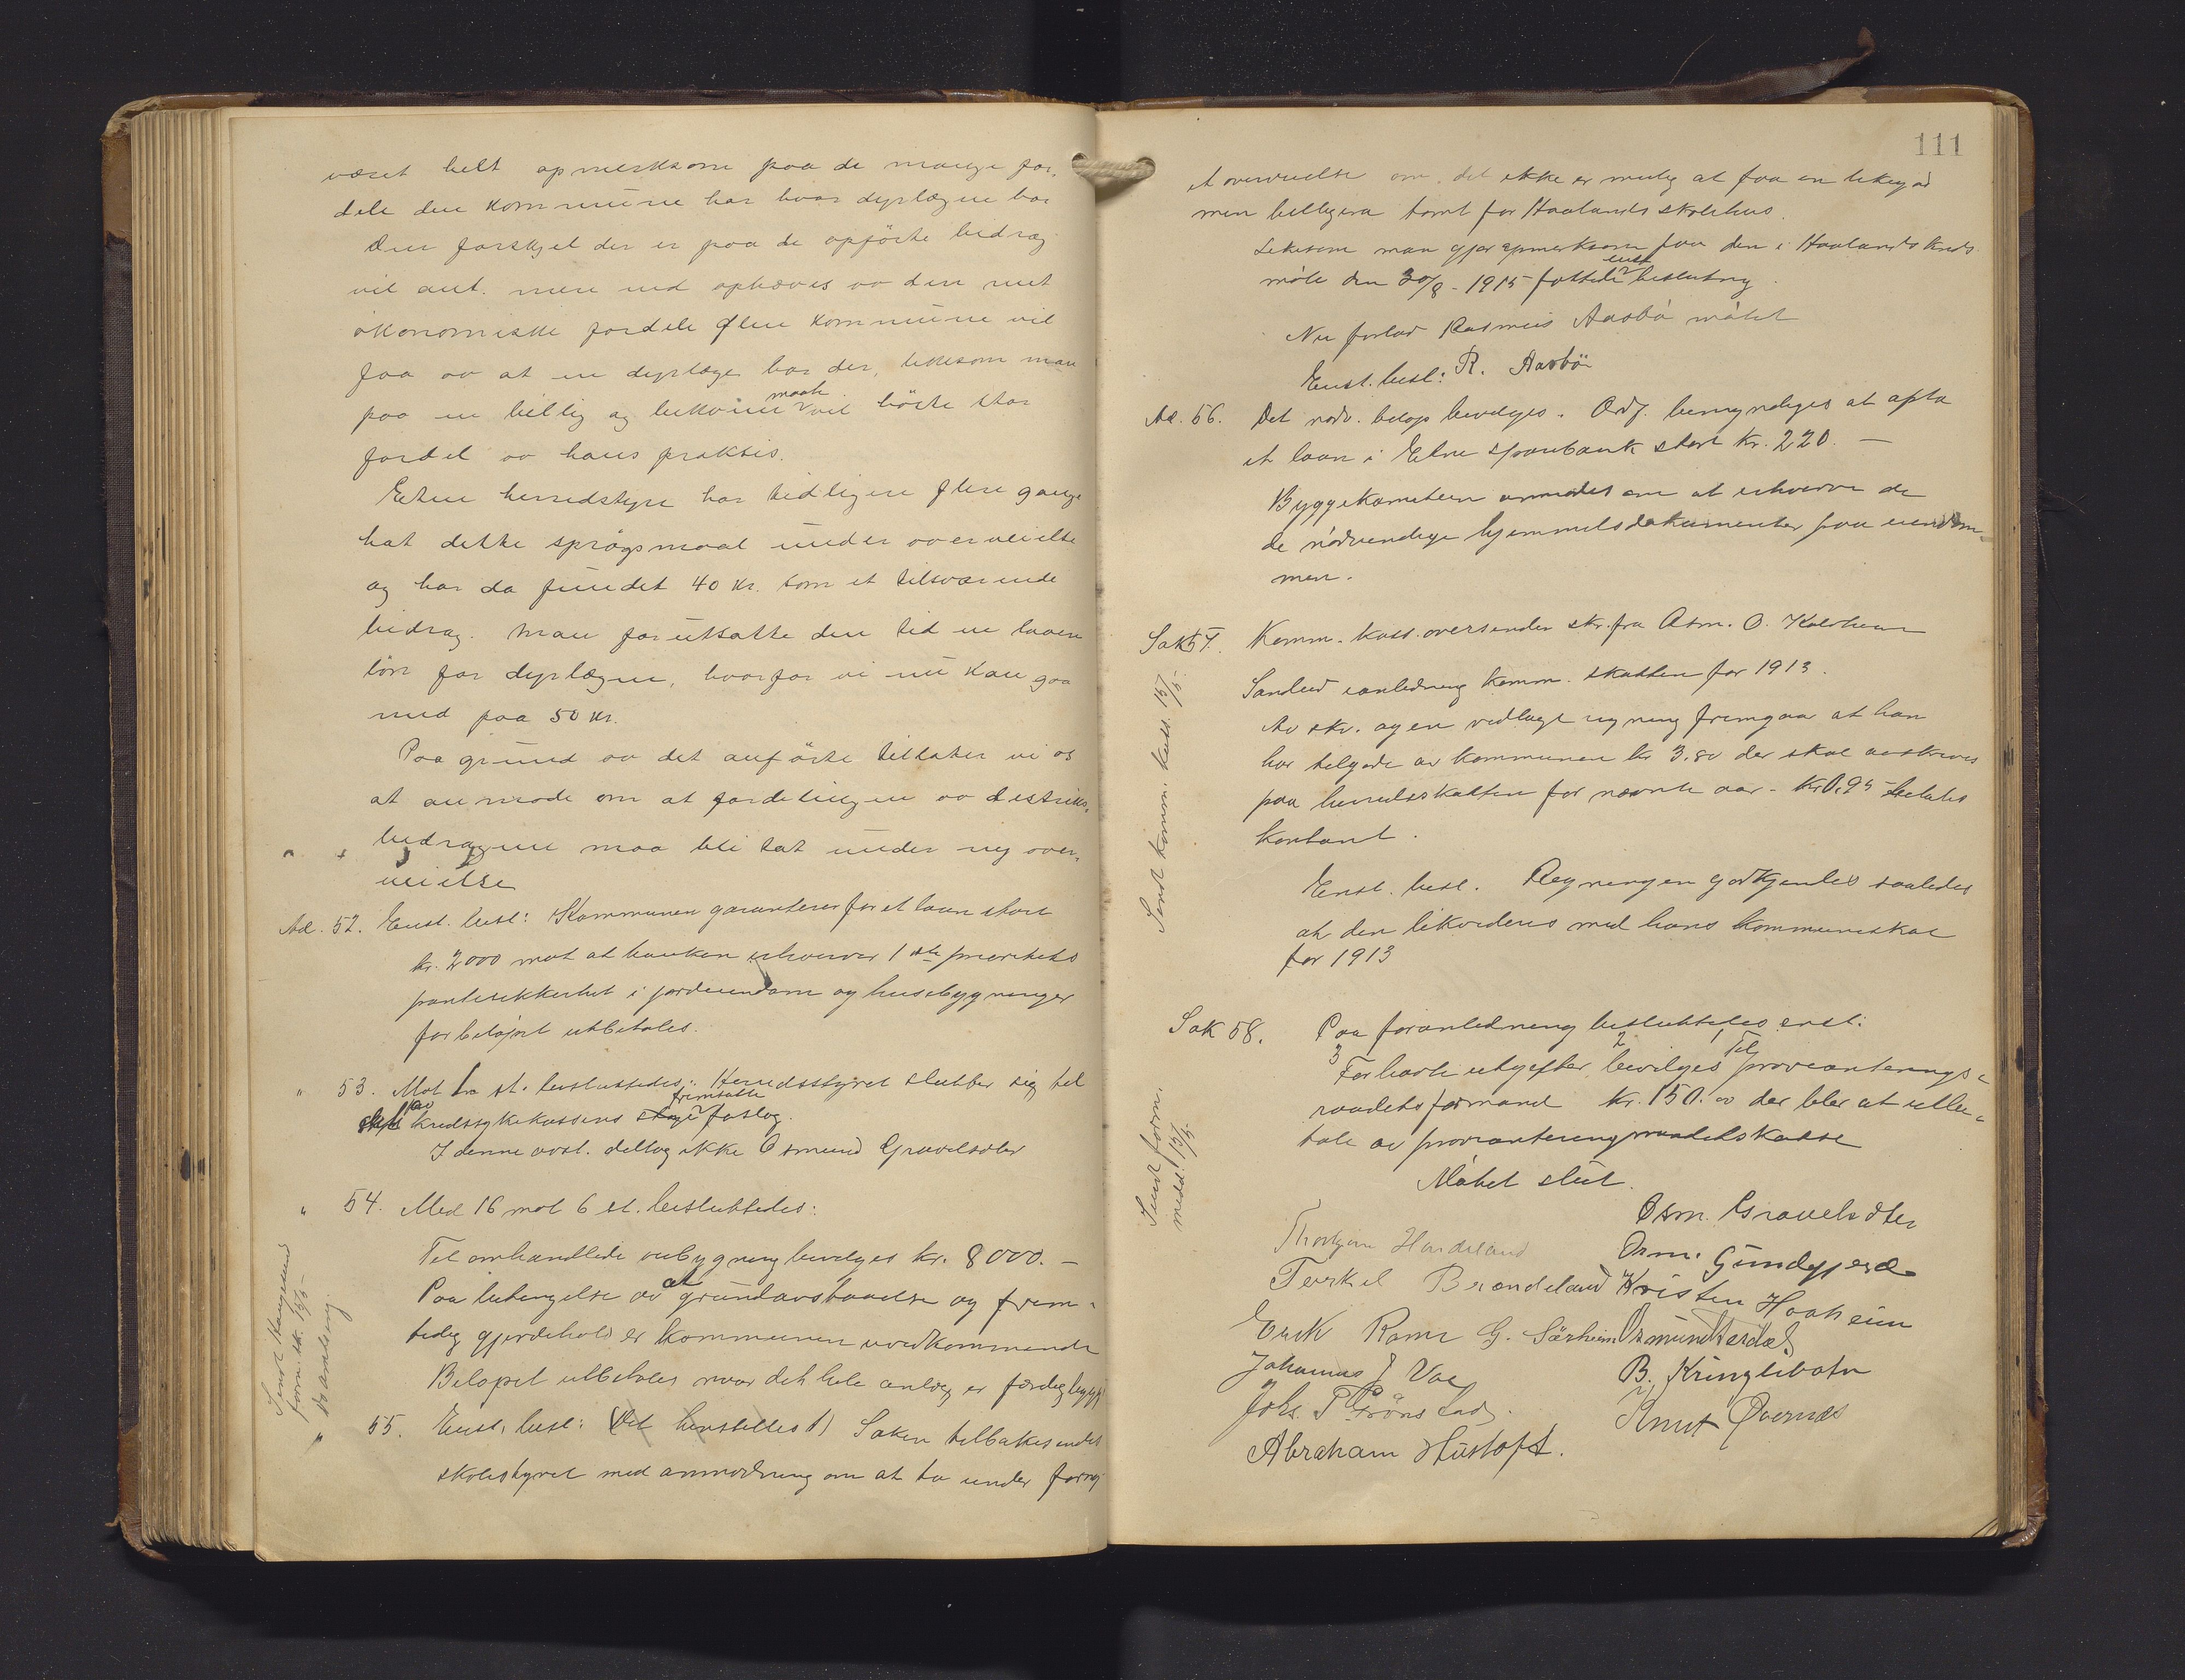 været helt opmerksom paa de mange for,
dele den kommune har hvor dyrlægen bor
Den forskjel der er paa de opførte bidrag
vil ant. mere end ophæves av den rent
økonomiske fordele flere kommune vil
faa av at en dyrlæge bor der, likesom man
paa en billig og bekvem maate vil høste stor
fordel av hans praksis.
Etne herredstyre har tidligere flere gange
hat dette spørgsmaal under overveielse
og har da fundet 40 kr. som et tilsvarende
bidrag. Man forutsatte den tid en lavere
løn for dyrlægen, hvorfor vi nu kan gaa
med paa 50 kr.
Paa grund av det anførte tillater vi os
at anmode om at fordelingen av distrikts,
bidragene maa bli tat under ny over,
veielse
Ad. 52. Enst. besl: Kommunen garanterer for et laan stort
kr. 2000 mot at banken erhverver 1ste prioritets
pantesikkerhet i jordeiendom og husebygninger
før beløpet utbetales.
" 53. Mot 1 st. besluttedes: Herredsstyret slutter sig til
kredssykekassens fremsatte forslag.
I denne avst. deltog ikke Osmund Gravelsæter
" 54. Med 16 mot 6 st. besluttedes:
Til omhandlede ombygning bevilges kr. 8000.—
Paa betingelse av at grundavstaaelse og frem-
tidig gjerdehold er kommunen uvedkommende
Beløpet utbetales naar det hele anlæg er færdig bygt
Sendt
form. sk. 15/5-
" 55. Enst. besl: (Det henstilles t) Saken tilbakesendes
skolestyret med anmodning om at ta under fornyet
111
et overveielse om det ikke er mulig at faa en likegod
men billigere tomt for Haalands skolehus.
Likesom man gjør opmerksom paa den i Haalands kreds
møte den 30/8 - 1915 fattede enst. beslutning.
Nu forlod Rasmus Aasbø møtet
R. Aasbø
Enst. besl:
Ad. 56. Det nødv. beløp bevilges. Ordf. bemyndiges at opta
et laan i Etne sparebank stort kr. 220.—
Byggekomiteen anmodes om at erhverve de
de nødvendige hjemmelsdokumenter paa eiendom-
men.
Sak 57. Komm. kass. oversender skr. fra Asm. O. Kaldheim
Sandeid i anledning komm. skatten for 1913.
Av skr. og en vedlagt regning fremgaar at han
har tilgode av kommunen kr 3.80 der skal avskrives
paa herredsskatten for nævnte aar - Kr 0,95 betales
kontant.
Sendt komm. kass. 15/5-
Enst. besl. Regningen godkjendes saaledes
at den likvideres med hans kommuneskat
for 1913
Sak 58. Paa foranledning besluttedes enst:
3 For havte utgifter 2 bevilges 1 Til provianterings-
raadets formand kr. 150.00 der blir at utbe-
tale av provianteringsraadets kasse
Sendt form.
medd. 15/5-
Møtet slut.
Osm. Gravelsæter
Thorbjørn Hardeland
Osm. Gundegjerde
Torkel Brændeland
Kristen Haaheim
Erik Rame
G. Særheim
Osmund
Johannes J Vae
B. Kringlebotn
Johs. P Grønstad.
Knut Øvernæs
Abraham Hustoft.